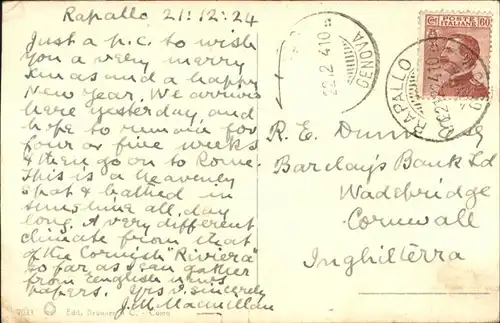 Rapallo, 21:12:24
Just a p.c. to wish
you a very merry
Xmas and a happy
New Year. We arrived
here yesterday, and
hope to remain for
four or five weeks
& then go on to Rome.
This is a heavenly
spot & bathed in
sunshine all day
long. A very different
climate from that
of the Cornish "Riviera"
so far as I can gather
from English news
papers. Yrs v. sincerely
J. M. Macmillan
R. E. Dunning
Barclay's Bank Ltd
Wadebridge
Cornwall
Inghilterra
POSTE ITALIANE
60
RAPALLO
GENOVA
Como